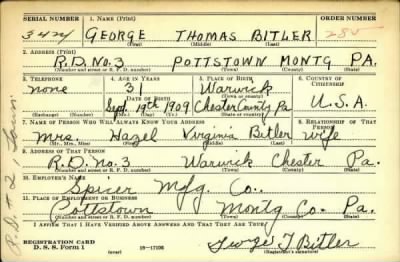 SERIAL NUMBER 1. NAME (Print) ORDER NUMBER
GEORGE THOMAS BITLER
(First) (Middle) (Last)
2. ADDRESS (Print)
R.D. NO. 3 POTTSTOWN MONTG PA.
(Number and street or R. F. D. number) (Town) (County) (State)
3. TELEPHONE 4. AGE IN YEARS 5. PLACE OF BIRTH 6. COUNTRY OF CITIZENSHIP
none 31 Warwick
DATE OF BIRTH
Sept 19th 1909 Chester County Pa U.S.A.
7. NAME OF PERSON WHO WILL ALWAYS KNOW YOUR ADDRESS 8. RELATIONSHIP OF THAT PERSON
Mrs. Hazel Virginia Bitler Wife
(Mr., Mrs., Miss) (First) (Middle) (Last)
9. ADDRESS OF THAT PERSON
R.D. No. 3 Warwick Chester Pa.
(Number and street or R. F. D. number) (Town) (County) (State)
10. EMPLOYER'S NAME
Spicer Mfg. Co.
11. PLACE OF EMPLOYMENT OR BUSINESS
Pottstown Montg Co. Pa.
(Number and street or R. F. D. number) (Town) (County) (State)
I AFFIRM THAT I HAVE VERIFIED ABOVE ANSWERS AND THAT THEY ARE TRUE.
REGISTRATION CARD
D. S. S. Form 1 (over) George T Bitler
(Registrant's signature)